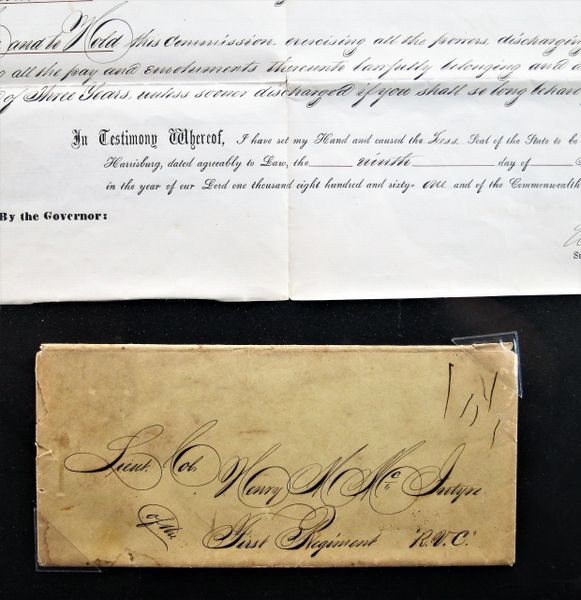 and to Hold this commission, exercising all the powers, discharging
all the pay and emoluments thereunto lawfully belonging and
of Three Years, unless sooner discharged if you shall so long behave
In Testimony Whereof, I have set my Hand and caused the Less. Seal of the State to be
Harrisburg, dated agreeably to Law, the ninth day of
in the year of our Lord one thousand eight hundred and sixty-one and of the Commonwealth
By the Governor:
Lieut. Col. Henry M McIntyre
of the First Regiment R.V.C.